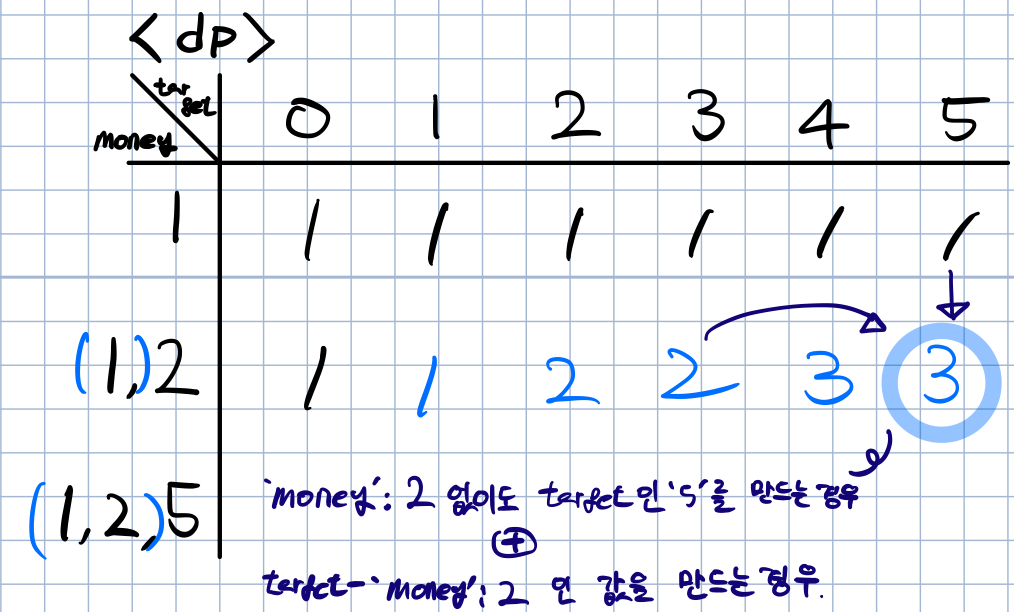 <dp>
target
money
0 1 2 3 4 5
1 1 1 1 1 1 1
(1,)2 1 1 2 2 3 3
(1,2,)5
'money': 2 없이도 target인 '5'를 만드는 경우
+
target-'money': 2 인 값을 만드는 경우.